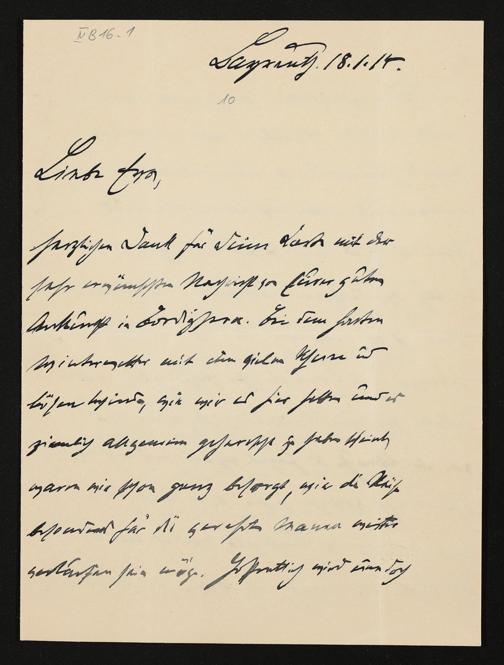 IV B 16-1
Bayreuth. 18.1.14.
10
Liebe Eva,
herzlichen Dank für Deine Karte mit der
sehr erwünschten Nachricht von Eurer guten
Ankunft in Bordighera. Bei dem harten
Winterwetter mit dem vielen Schnee und
bösen Winde, wie wir es hier hatten und es
ziemlich allgemein geherrscht zu haben scheint,
waren wir schon ganz besorgt, wie die Reise
besonders für die verehrte Mama weiter
verlaufen sein möge. Hoffentlich wird nun doch